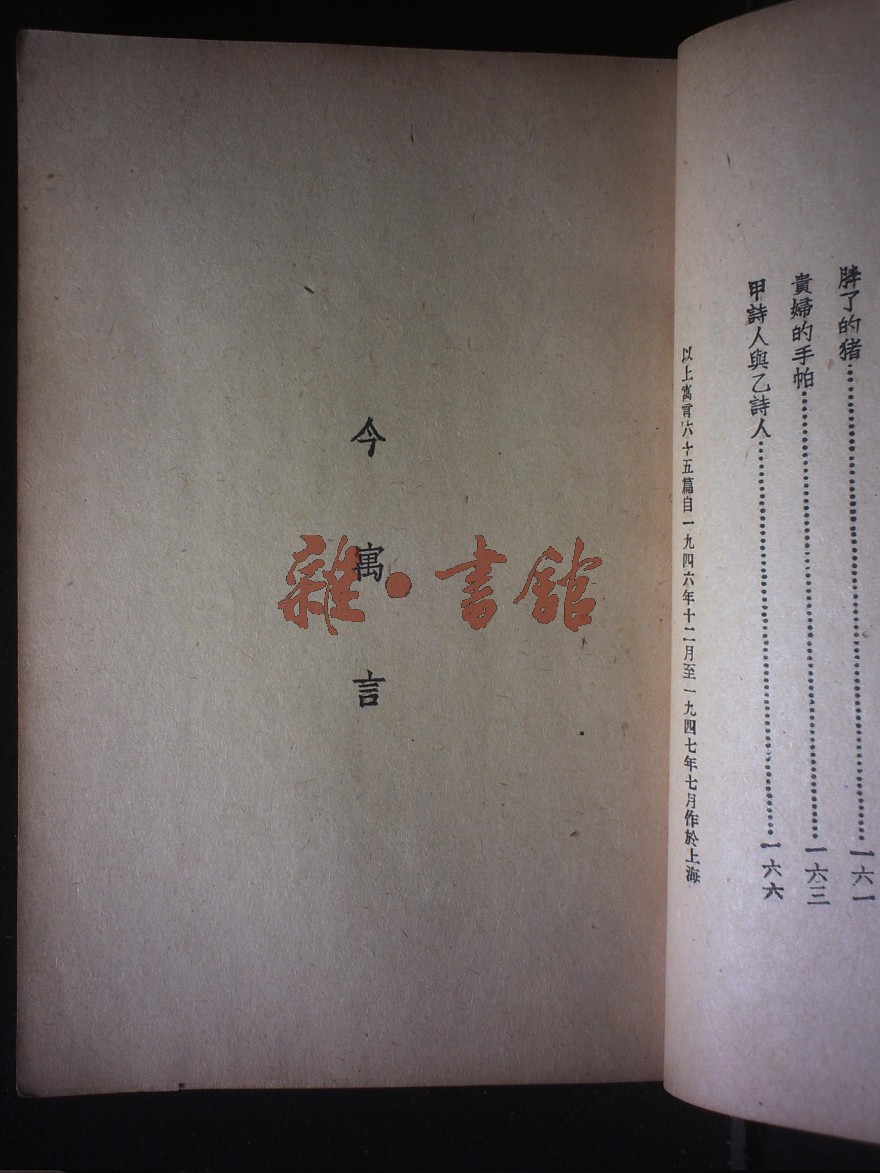 胖了的猪……一六一
貴婦的手帕……一六三
甲詩人與乙詩人……一六六
以上寓言六十五篇自一九四六年十二月至一九四七年七月作於上海
今寓言
雜·書館